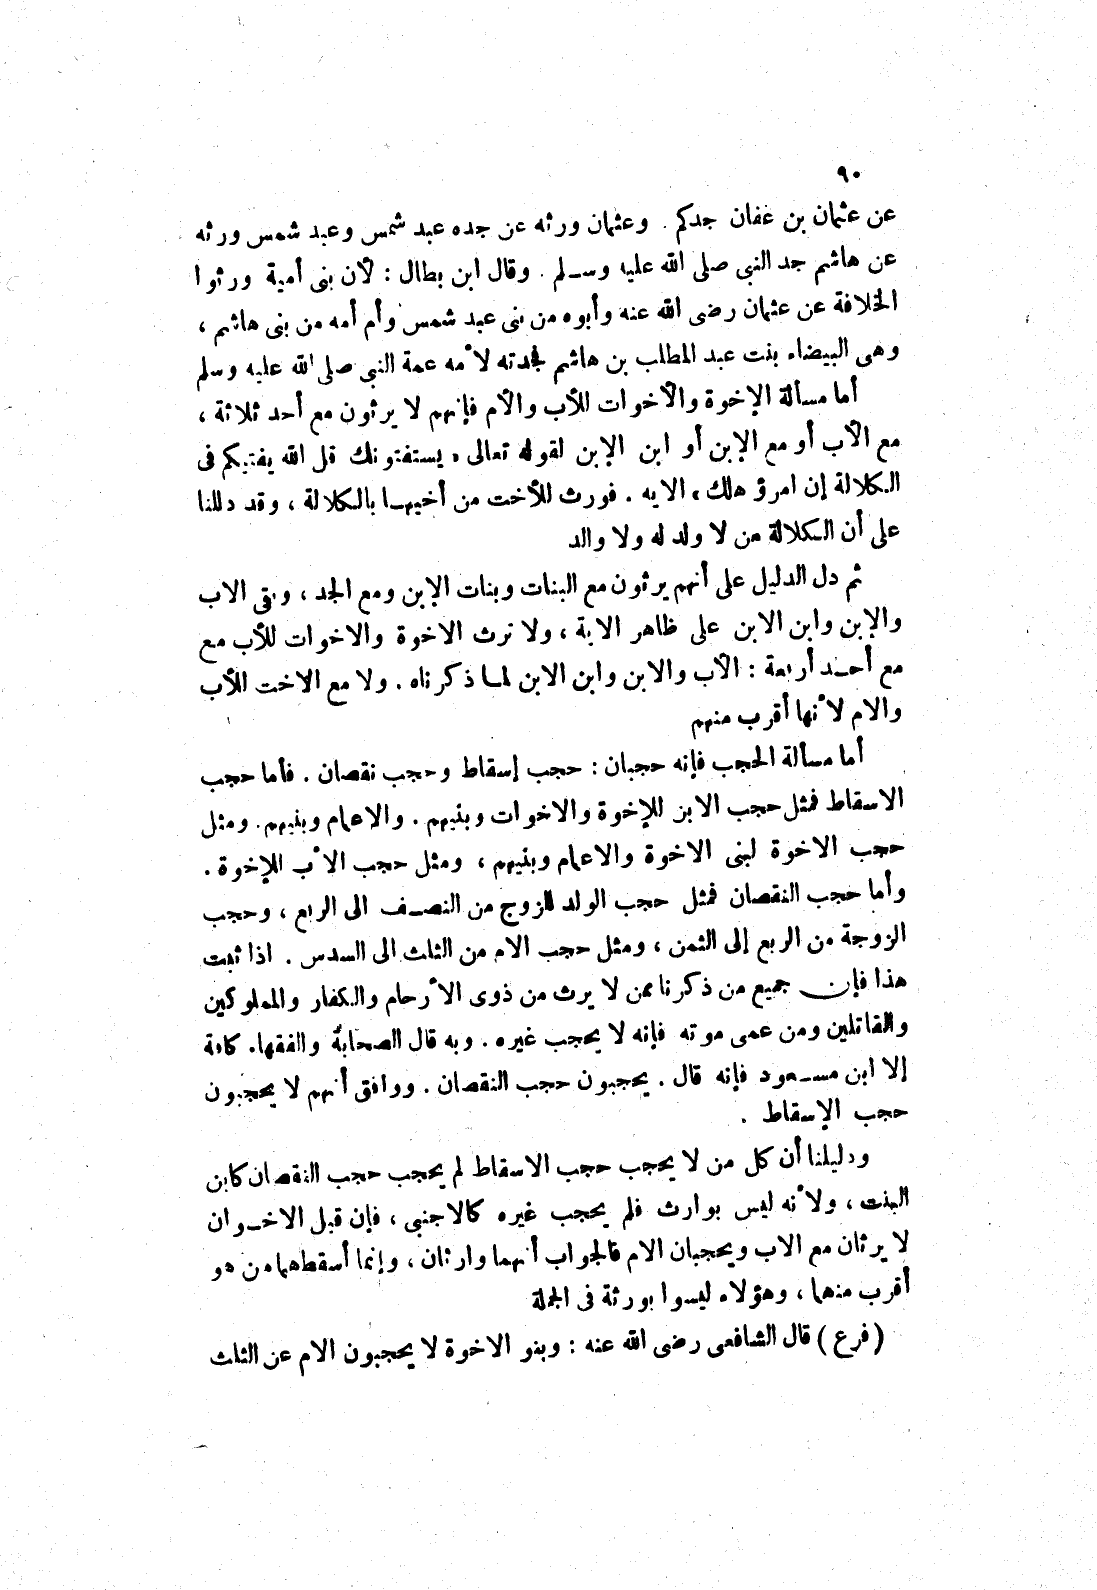 ٩٠
عن عثمان بن عفان جدكم . وعثمان ورثه عن جده عبد شمس وعبد شمس ورثه
عن هاشم جد النبى صلى الله عليه وسلم . وقال ابن بطال : لأن بنى أمية ورثوا
الخلافة عن عثمان رضى الله عنه وأبوه من بنى عبد شمس وأم أمه من بنى هاشم ،
وهى البيضاء بنت عبد المطلب بن هاشم فجدته لأمه عمة النبى صلى الله عليه وسلم
أما مسألة الإخوة والأخوات للأب والأم فإنهم لا يرثون مع أحد ثلاثة ،
مع الأب أو مع الإبن أو ابن الإبن لقوله تعالى « يستفتونك قل الله يفتيكم فى
الكلالة إن امرؤ هلك » الايه . فورث للأخت من أخيها بالكلالة ، وقد دللنا
على أن الكلالة من لا ولد له ولا والد
ثم دل الدليل على أنهم يرثون مع البنات وبنات الإبن ومع الجد ، وبقى الاب
والإبن وابن الابن على ظاهر الاية ، ولا نرث الاخوة والاخوات للأب مع
مع أحد أربعة : الأب والابن وابن الابن لما ذكرناه . ولا مع الاخت للأب
والام لأنها أقرب منهم
أما مسألة الحجب فإنه حجبان : حجب إسقاط وحجب نقصان . فأما حجب
الاسقاط فمثل حجب الابن للإخوة والاخوات وبنيهم . والاعمام وبنيهم . ومثل
حجب الاخوة لبنى الاخوة والاعمام وبنيهم ، ومثل حجب الأب للإخوة .
وأما حجب النقصان فمثل حجب الولد للزوج من النصف الى الربع ، وحجب
الزوجة من الربع إلى الثمن ، ومثل حجب الام من الثلث الى السدس . اذا ثبت
هذا فإن جميع من ذكرنا ممن لا يرث من ذوى الأرحام والكفار والمملوكين
والقاتلين ومن عمى موته فإنه لا يحجب غيره . وبه قال الصحابة والفقهاء كافة
إلا ابن مسعود فإنه قال . يحجبون حجب النقصان . ووافق أنهم لا يحجبون
حجب الإسقاط .
ودليلنا أن كل من لا يحجب حجب الاسقاط لم يحجب حجب النقصان كابن
البنت ، ولأنه ليس بوارث فلم يحجب غيره كالاجنبى ، فإن قبل الاخوان
لا يرثان مع الاب ويحجبان الام فالجواب أنهما وارثان ، وإنما أسقطهما من هو
أقرب منهما ، وهؤلاء ليسوا بورثة فى الجملة
( فرع ) قال الشافعى رضى الله عنه : وبنو الاخوة لا يحجبون الام عن الثلث